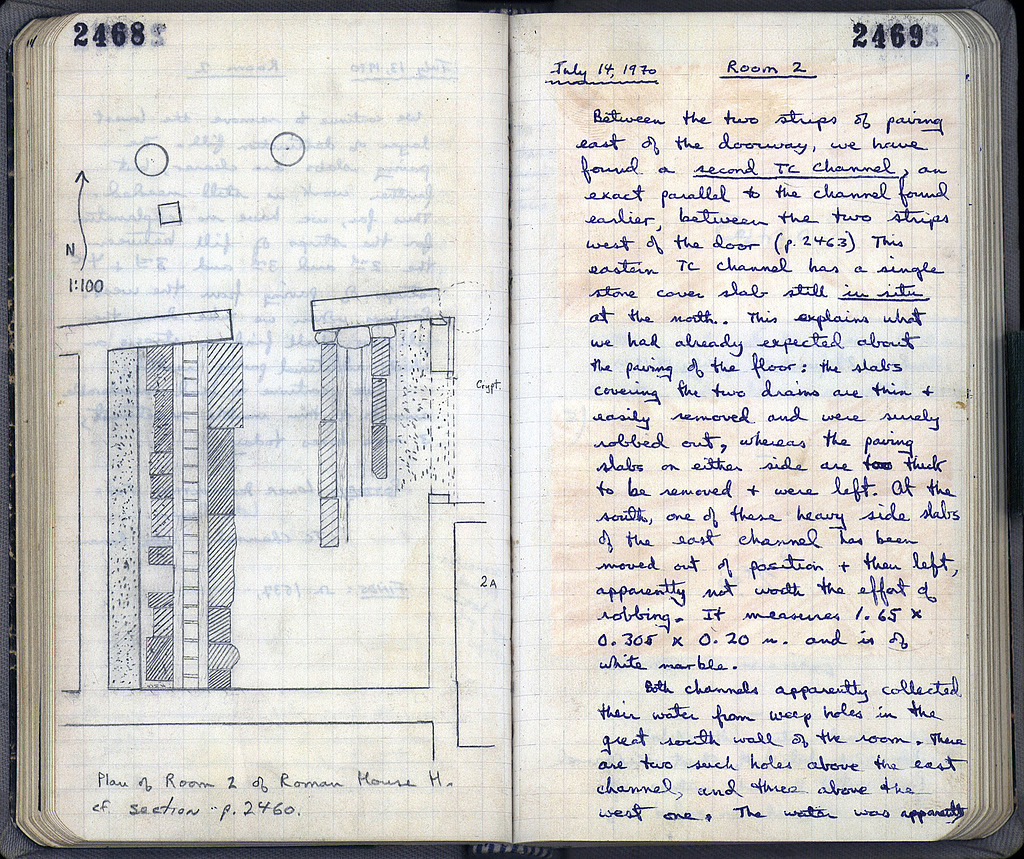 2468
N
1:100
Crypt.
2A
Plan of Room 2 of Roman House H.
cf. section - p. 2460.
2469
July 14, 1970 Room 2
Between the two strips of paving
east of the doorway, we have
found a second TC channel, an
exact parallel to the channel found
earlier, between the two strips
west of the door (p. 2463) This
eastern TC channel has a single
stone cover slab still in situ
at the north. This explains what
we had already expected about
the paving of the floor: the slabs
covering the two drains are thin +
easily removed and were surely
robbed out, whereas the paving
slabs on either side are too thick
to be removed + were left. At the
south, one of these heavy side slabs
of the east channel has been
moved out of position + then left,
apparently not worth the effort of
robbing. It measures 1.65 x
0.305 x 0.20 m. and is of
white marble.
Both channels apparently collected
their water from weep holes in the
great south wall of the room. There
are two such holes above the east
channel, and three above the
west one. The water was apparently